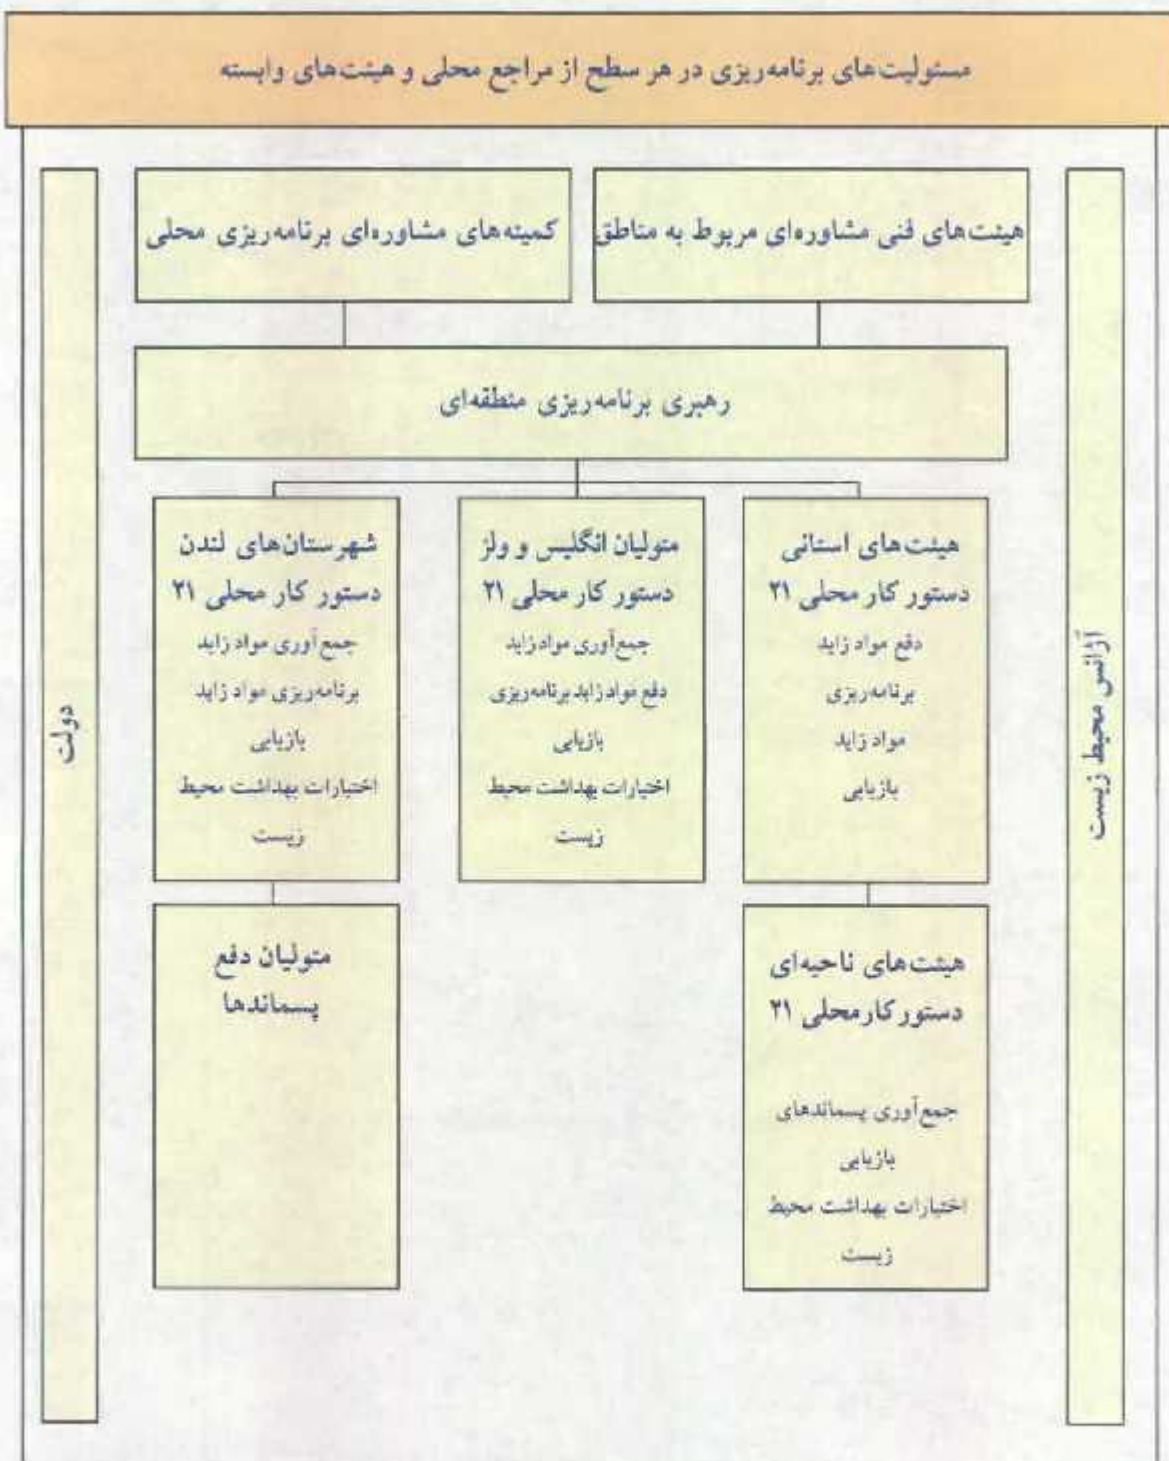 مسئولیت‌های برنامه‌ریزی در هر سطح از مراجع محلی و هیئت‌های وابسته
هیئت‌های فنی مشاوره‌ای مربوط به مناطق
کمیته‌های مشاوره‌ای برنامه‌ریزی محلی
رهبری برنامه‌ریزی منطقه‌ای
آژانس محیط زیست
هیئت‌های استانی
دستور کار محلی ۲۱
دفع مواد زاید
برنامه‌ریزی
مواد زاید
بازیابی
متولیان انگلیس و ولز
دستور کار محلی ۲۱
جمع‌آوری مواد زاید
دفع مواد زاید برنامه‌ریزی
بازیابی
اختیارات بهداشت محیط
زیست
شهرستان‌های لندن
دستور کار محلی ۲۱
جمع‌آوری مواد زاید
برنامه‌ریزی مواد زاید
بازیابی
اختیارات بهداشت محیط
زیست
هیئت‌های ناحیه‌ای
دستور کار محلی ۲۱
جمع‌آوری پسماندهای
بازیابی
اختیارات بهداشت محیط
زیست
متولیان دفع
پسماندها
دولت